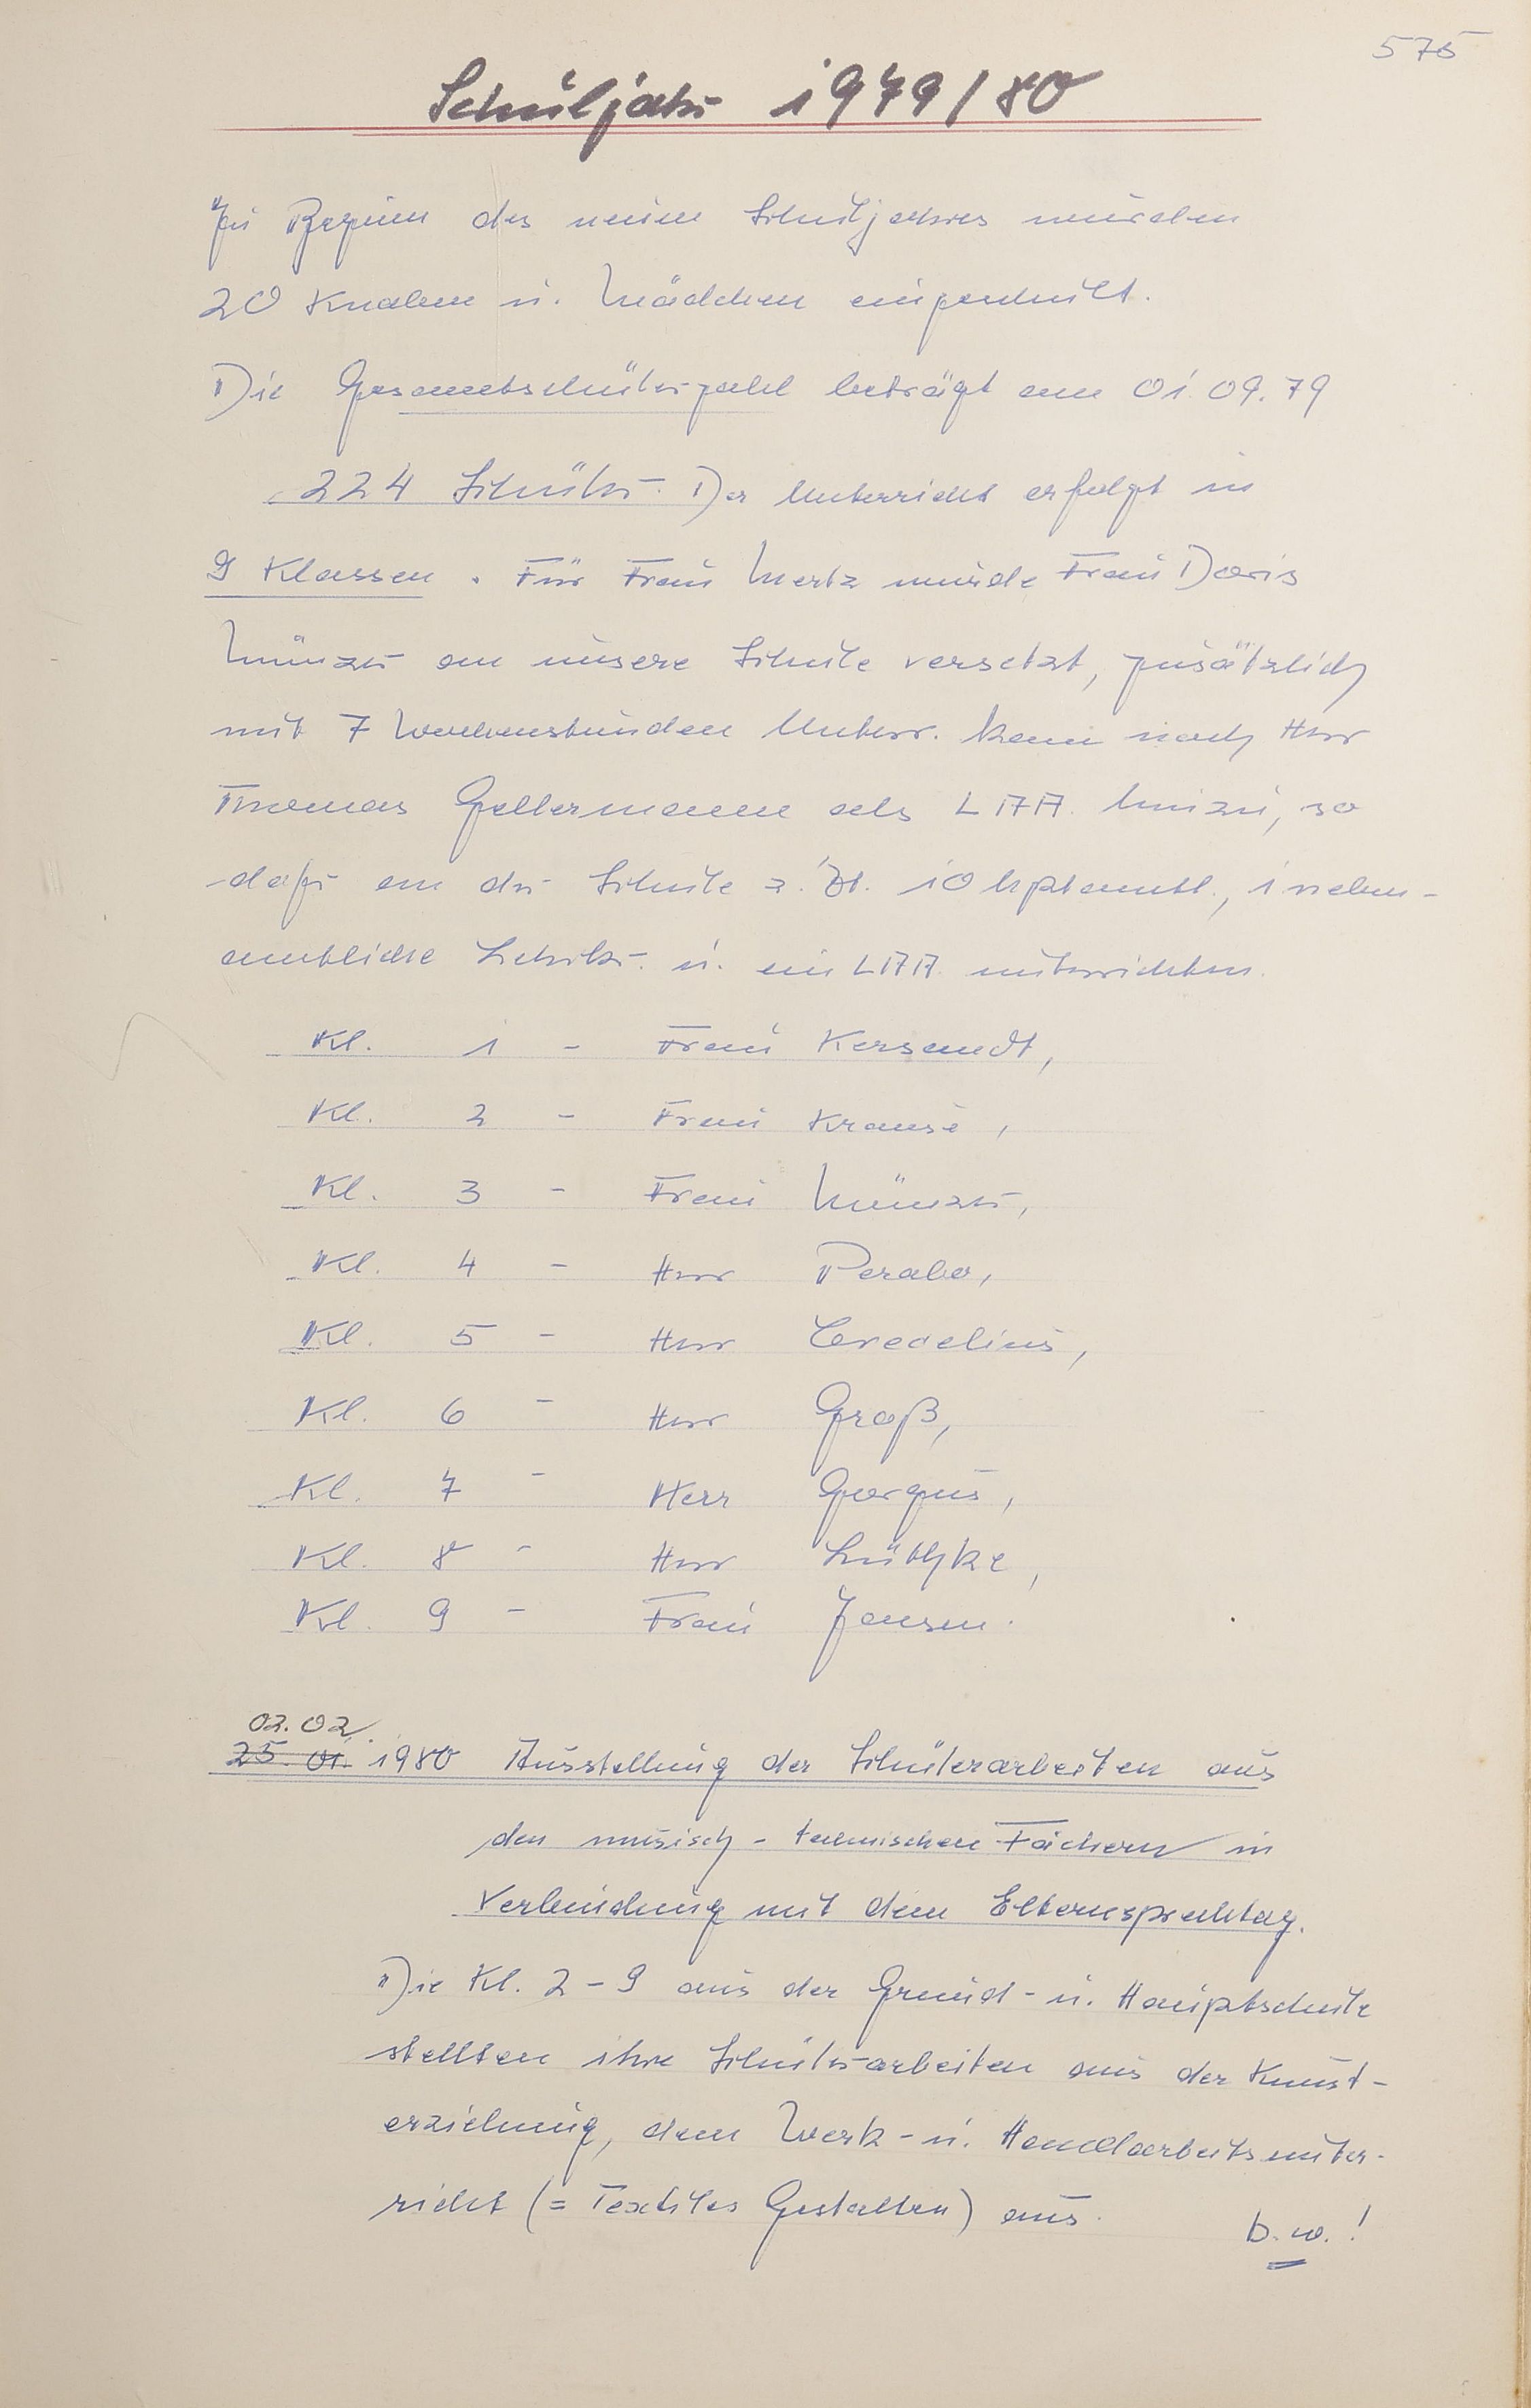 575
Schuljahr 1979/80
Zu Beginn des neuen Schuljahres wurden
20 Knaben u. Mädchen eingeschult.
Die Gesamtschülerzahl beträgt am 01.09.79
224 Schüler. Der Unterricht erfolgt in
9 Klassen. Für Frau Mertz wurde Frau Doris
Münzer an unsere Schule versetzt, zusätzlich
mit 7 Wochenstunden Unterr. kam noch Herr
Thomas Gellermann als LAA. hinzu, so
daß an der Schule z. Zt. 10 hptamtl., 1 neben-
amtliche Lehrkr. u. ein LAA. unterrichten.
Kl. 1 - Frau Kersandt,
Kl. 2 - Frau Krause,
Kl. 3 - Frau Münzer,
Kl. 4 - Herr Perabo,
Kl. 5 - Herr Credelius,
Kl. 6 - Herr Groß,
Kl. 7 - Herr Gorgus,
Kl. 8 - Herr Lüthke,
Kl. 9 - Frau Jansen.
02.02.
25. 01. 1980 Ausstellung der Schülerarbeiten aus
den musisch-technischen Fächern in
Verbindung mit dem Elternsprechtag.
Die Kl. 2-9 aus der Grund- u. Hauptschule
stellten ihre Schülerarbeiten aus der Kunst-
erziehung, dem Werk- u. Handarbeitsunter-
richt (= Textiles Gestalten) aus.
b.w.!